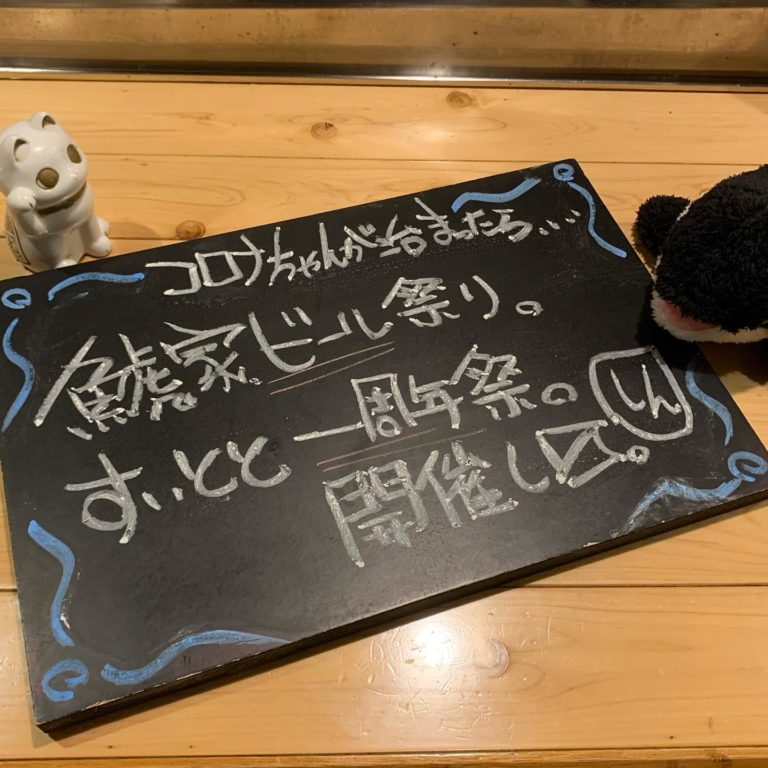 コロナちゃんが治まったら…
鯱家ビール祭り。
すいとと一周年祭。
りん
開催し〼。